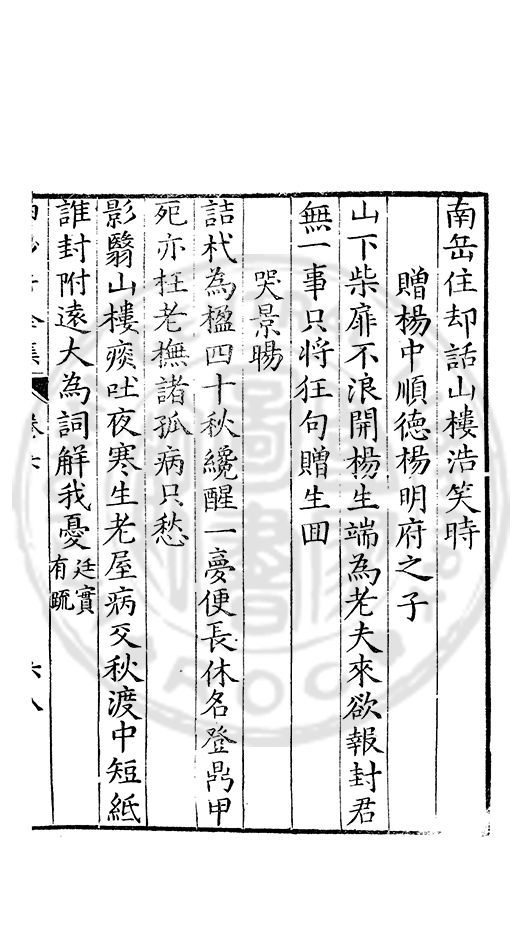 南岳住却話山樓浩笑時
贈楊中順德楊明府之子
山下柴扉不浪開楊生端為老夫來欲報封君
無一事只將狂句贈生囬
哭景暘
詰杙為楹四十秋纔醒一夢便長休名登鼎甲
死亦枉老撫諸孤病只愁
影翳山樓痰吐夜寒生老屋病交秋渡中短紙
誰封附遠大為詞解我憂廷實有疏